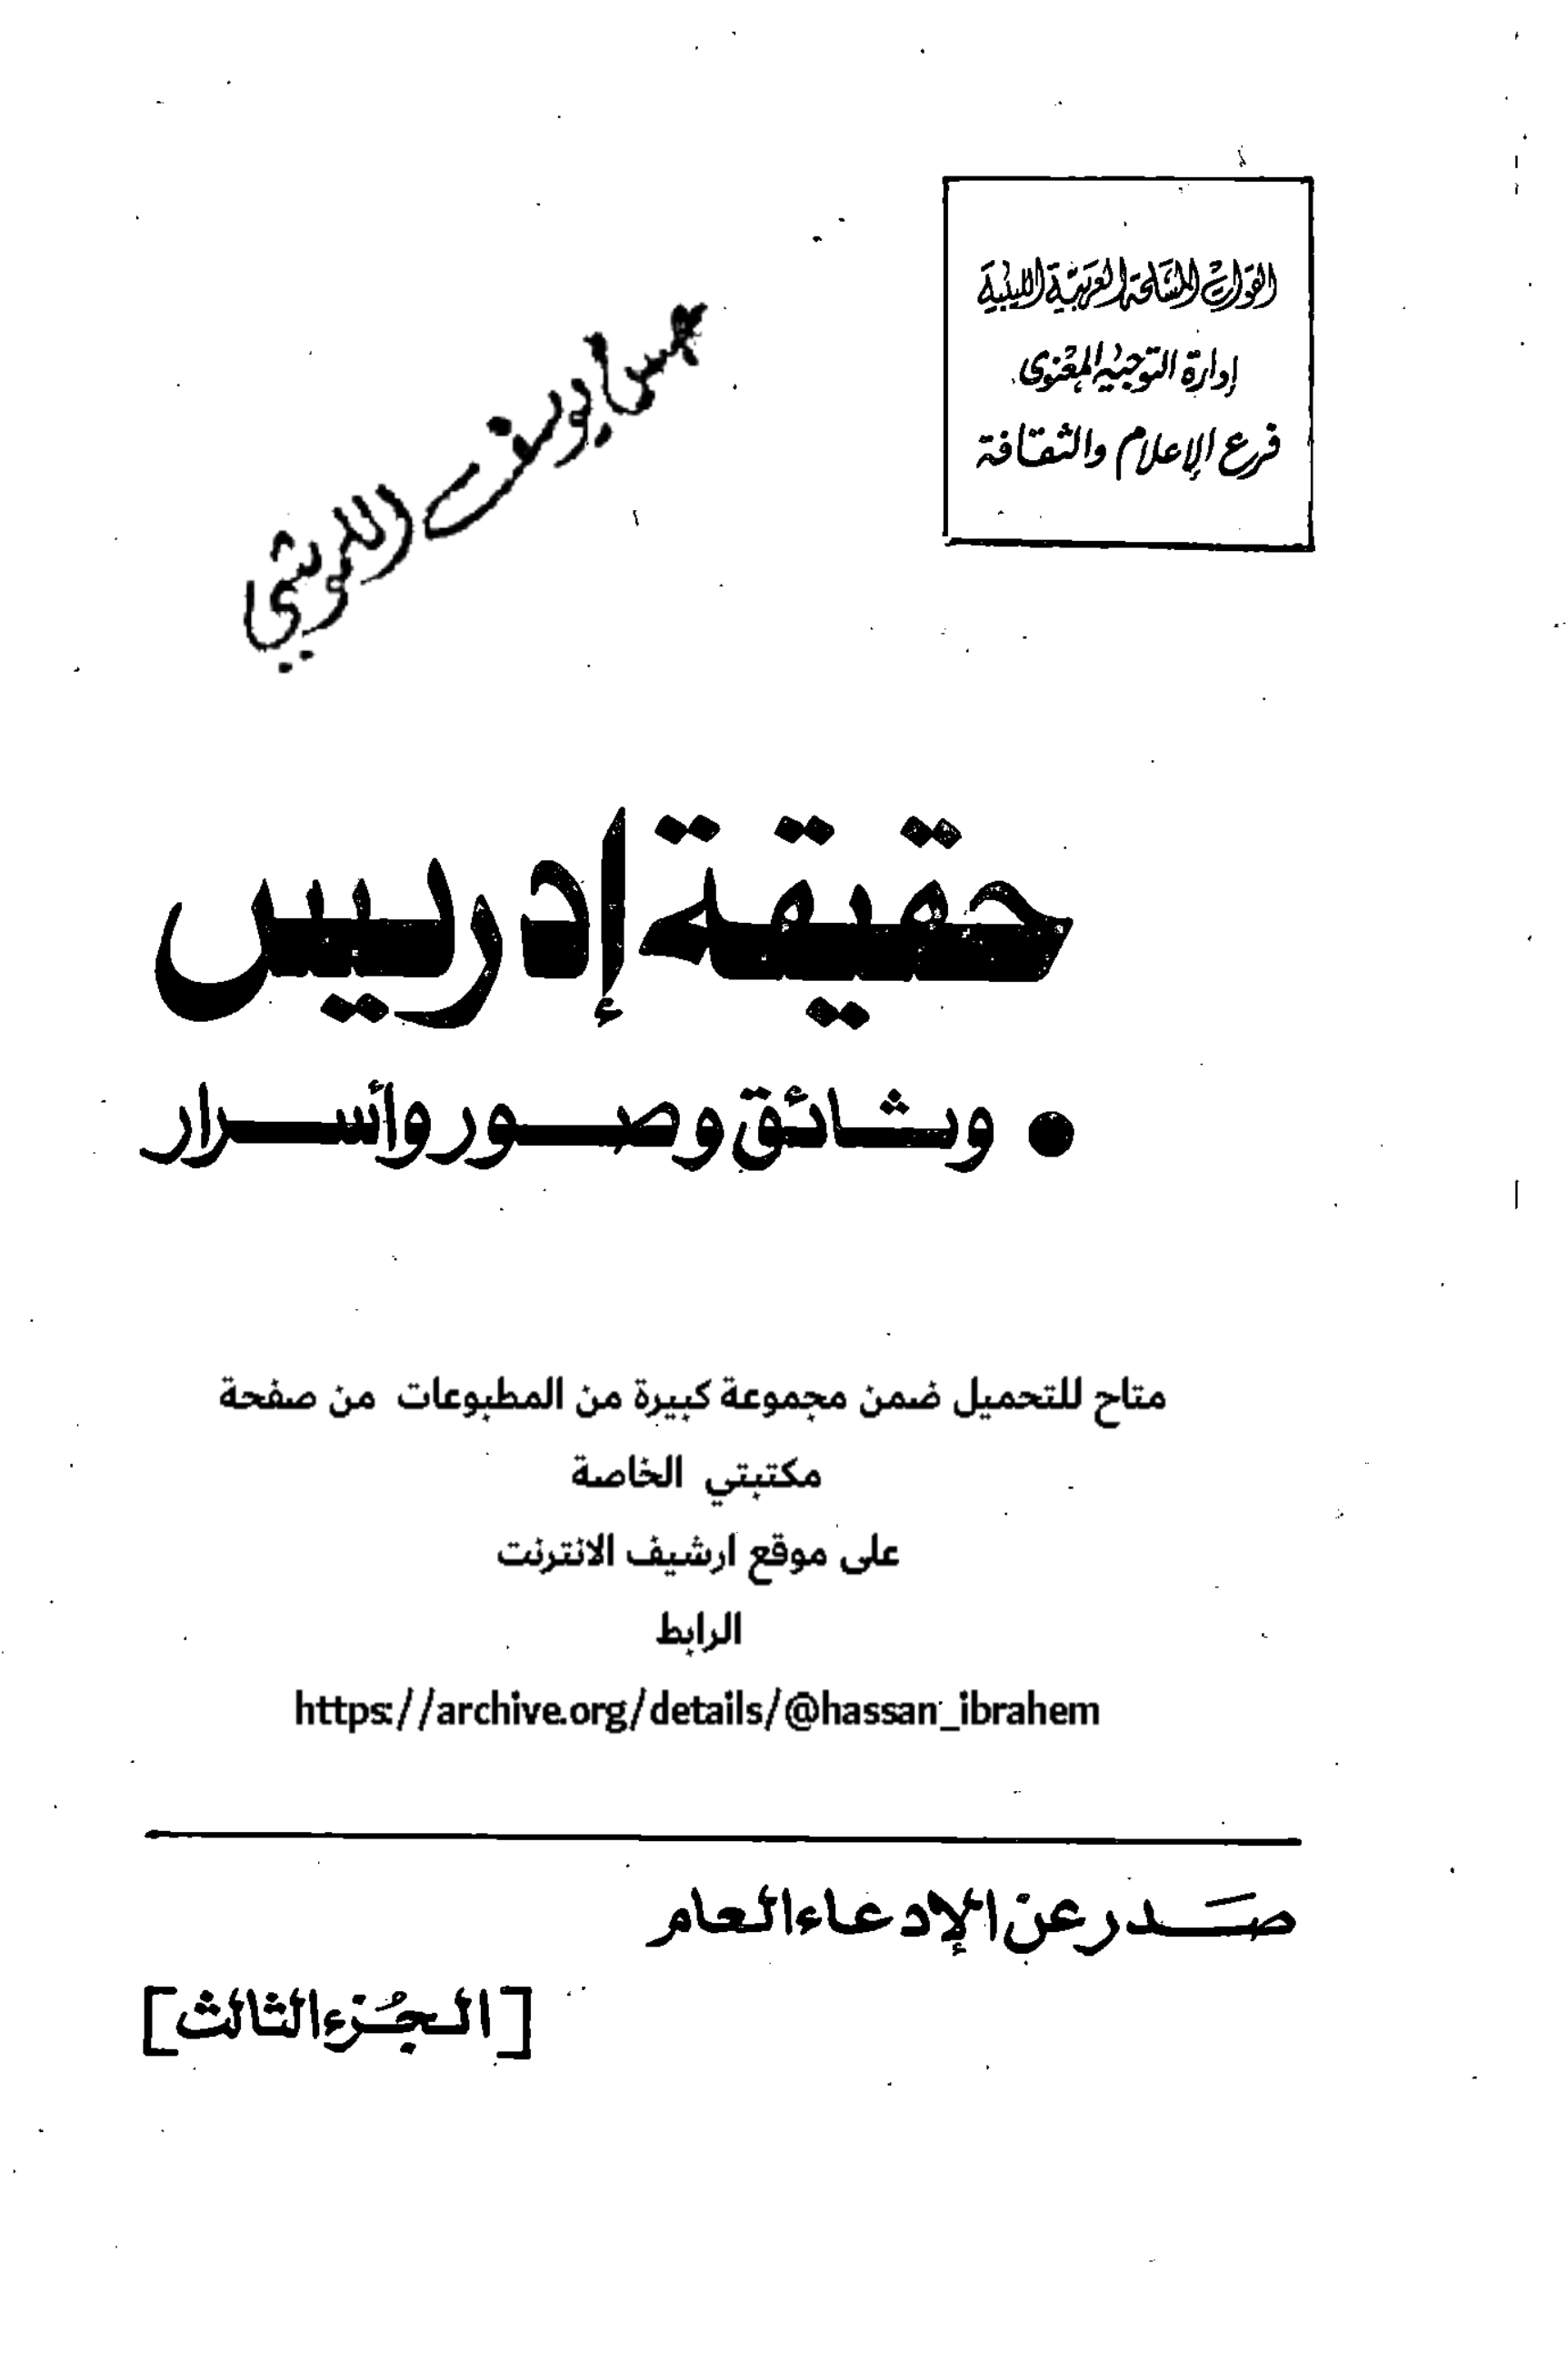 القوات المسلحة العربية الليبية
إدارة التوجيه المعنوى
فرع الإعلام والثقافة
يوسف
حقيقة إدريس
• وثائق وصور وأسرار
متاح للتحميل ضمن مجموعة كبيرة من المطبوعات من صفحة
مكتبتي الخاصة
على موقع ارشيف الانترنت
الرابط
https://archive.org/details/@hassan_ibrahem
صدر عن الإدعاء العام
[الجزء الثالث]